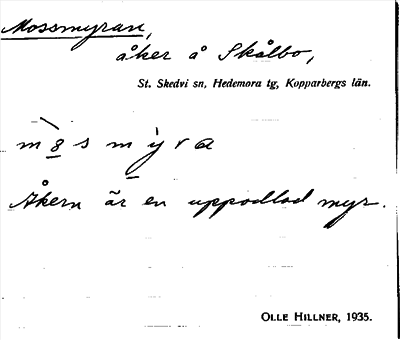 Mossmyran,
åker å Skålbo,
St. Skedvi sn, Hedemora tg, Kopparbergs län.
Åkern är en uppodlad myr.
OLLE HILLNER, 1935.